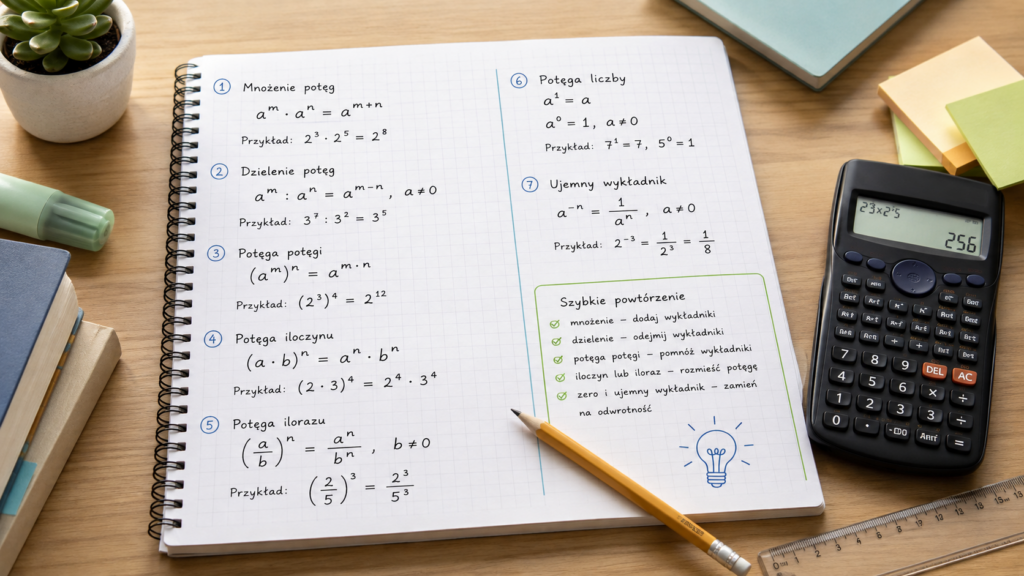 1 Mnożenie potęg
aᵐ · aⁿ = aᵐ⁺ⁿ
Przykład: 2³ · 2⁵ = 2⁸
2 Dzielenie potęg
aᵐ : aⁿ = aᵐ⁻ⁿ, a ≠ 0
Przykład: 3⁷ : 3² = 3⁵
3 Potęga potęgi
(aᵐ)ⁿ = aᵐ · ⁿ
Przykład: (2³)⁴ = 2¹²
4 Potęga iloczynu
(a · b)ⁿ = aⁿ · bⁿ
Przykład: (2 · 3)⁴ = 2⁴ · 3⁴
5 Potęga ilorazu
(a/b)ⁿ = aⁿ/bⁿ, b ≠ 0
Przykład: (2/5)³ = 2³/5³
6 Potęga liczby
a¹ = a
a⁰ = 1, a ≠ 0
Przykład: 7¹ = 7, 5⁰ = 1
7 Ujemny wykładnik
a⁻ⁿ = 1/aⁿ, a ≠ 0
Przykład: 2⁻³ = 1/2³ = 1/8
Szybkie powtórzenie
mnożenie – dodaj wykładniki
dzielenie – odejmij wykładniki
potęga potęgi – pomnóż wykładniki
iloczyn lub iloraz – rozmieść potęgę
zero i ujemny wykładnik – zamień
na odwrotność
256
7 8 9 DEL AC
4 5 6 × ÷
1 2 3 + −
0 · =